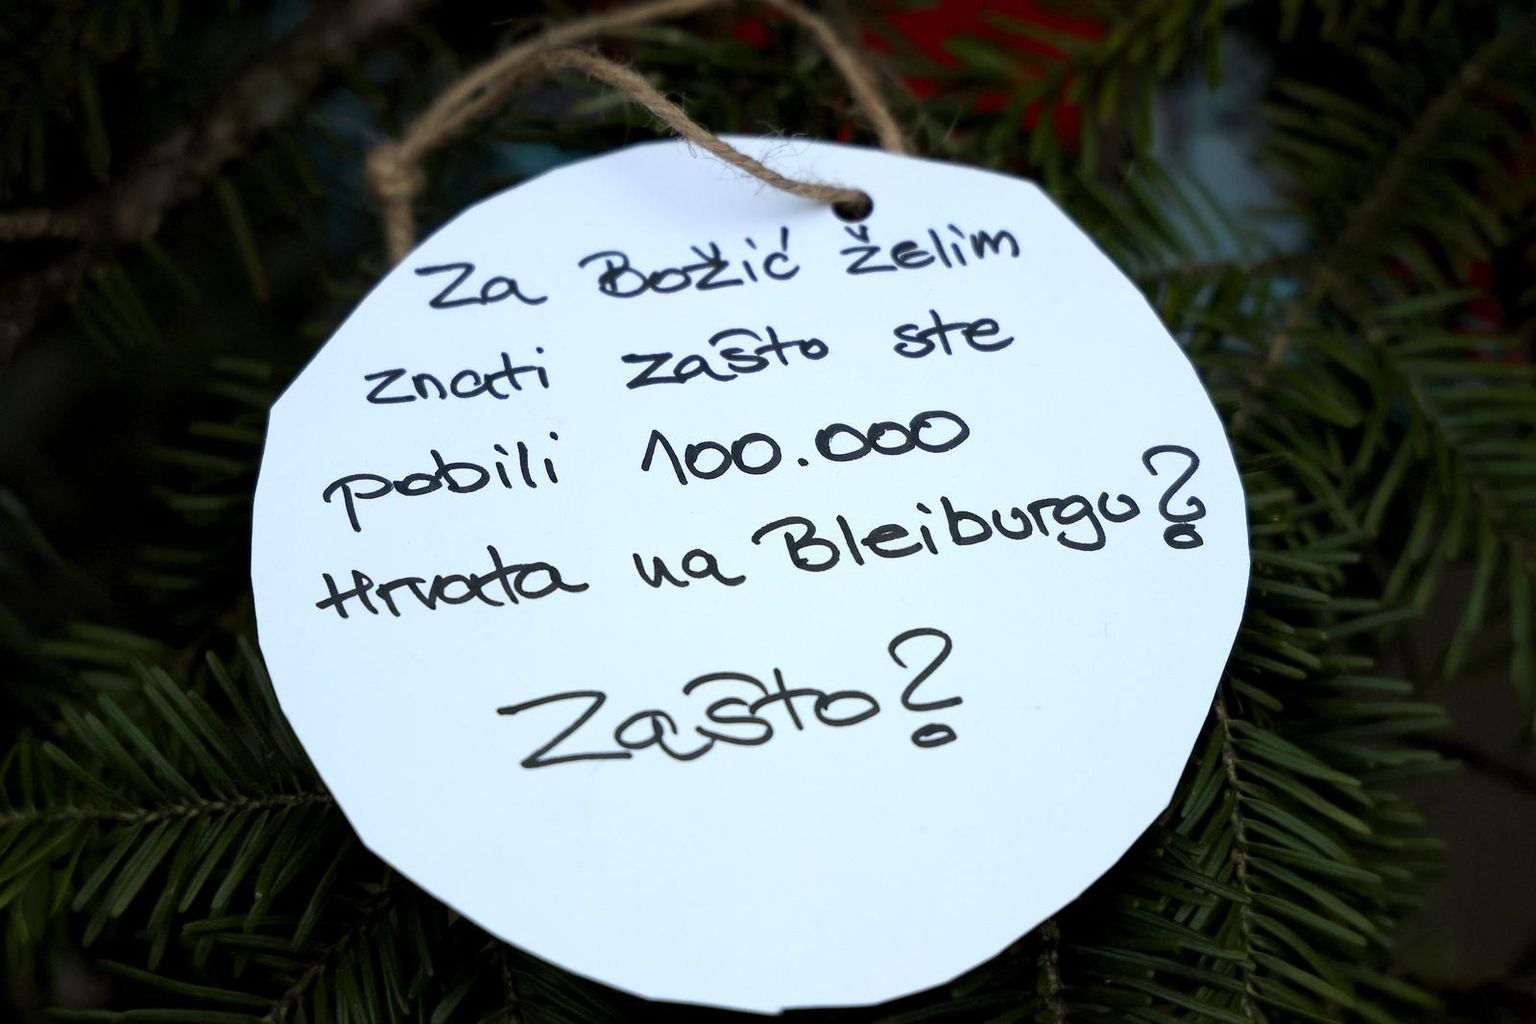 Za Božić želim
znati zašto ste
pobili 100.000
Hrvata na Bleiburgu?
Zašto?